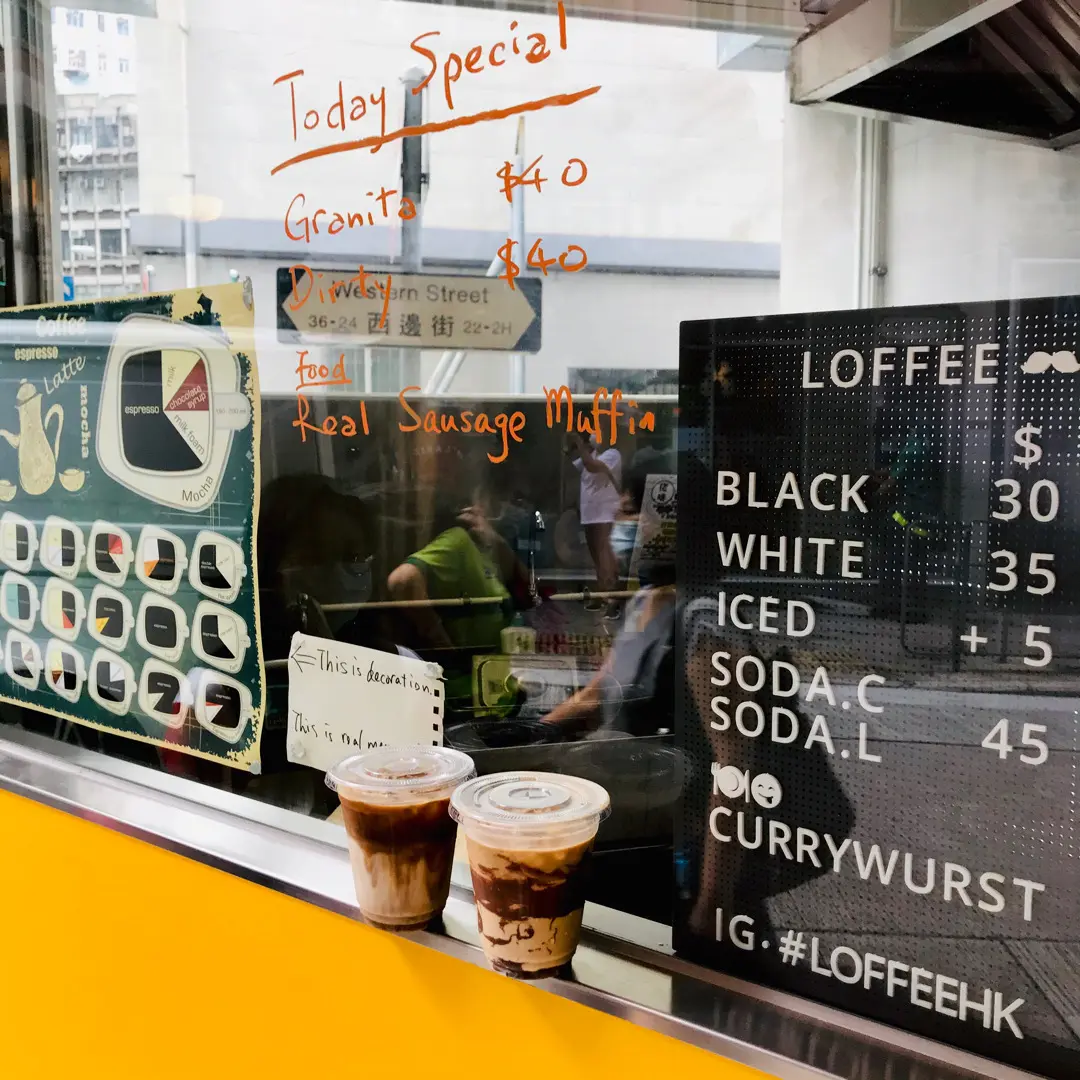 Today Special
Granita $40
Dirty $40
Western Street
36-24 西邊街 22-2H
Food
Real Sausage Muffin
Coffee
espresso
Latte
mocha
espresso
milk
chocolate syrup
milk foam
Mocha
This is decoration.
This is real
LOFFEE
$
BLACK 30
WHITE 35
ICED + 5
SODA.C
SODA.L 45
CURRYWURST
IG. #LOFFEEHK